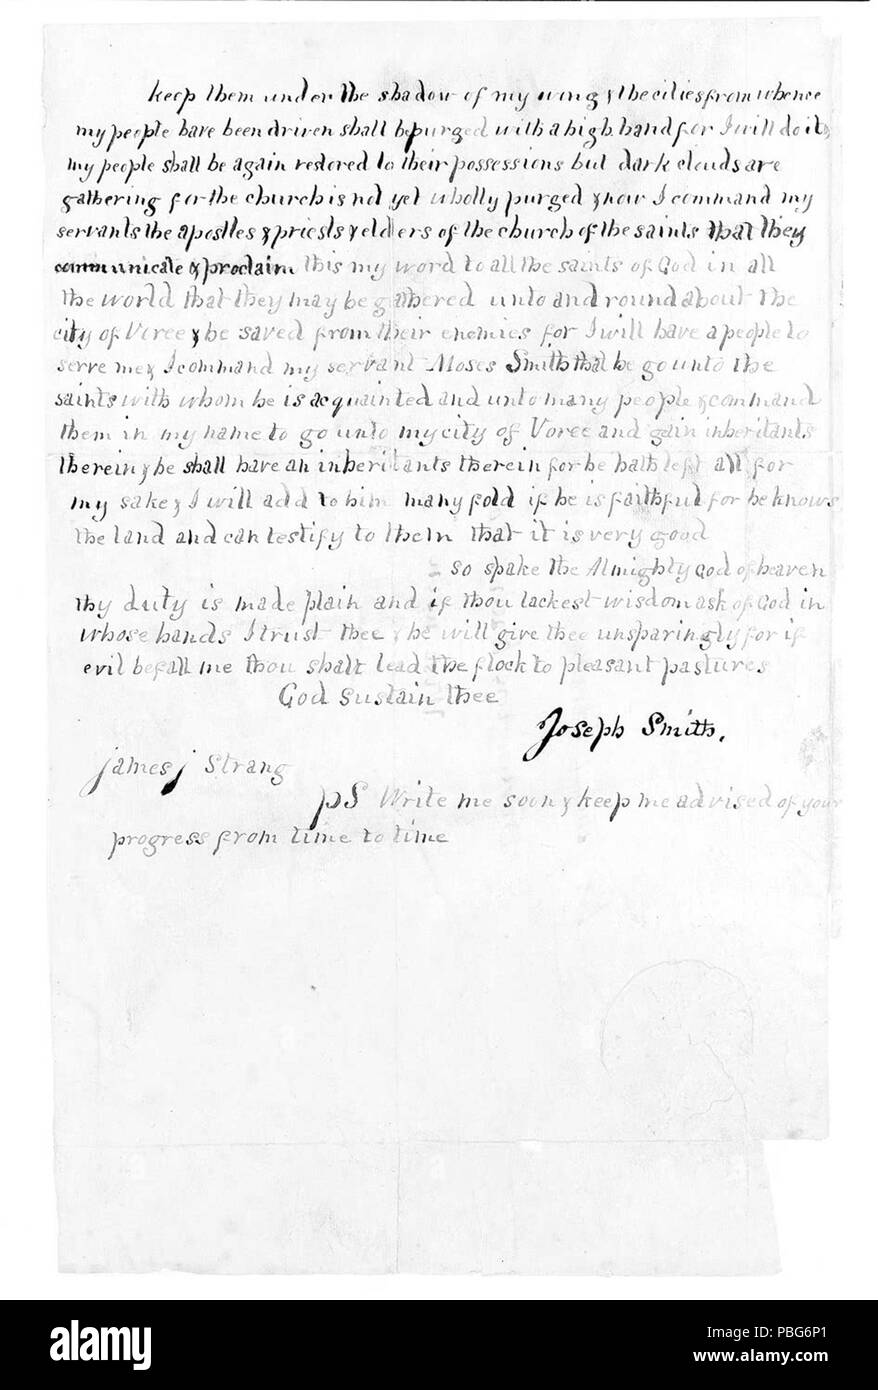 keep them under the shadow of my wing & the cities from whence
my people have been driven shall be purged with a high hand for I will do it &
my people shall be again restored to their possessions but dark clouds are
gathering for the church is not yet wholly purged & now I command my
servants the apostles & priests & elders of the church of the saints that they
communicate & proclaim this my word to all the saints of God in all
the world that they may be gathered unto and round about the
city of Voree & be saved from their enemies for I will have a people to
serve me & I command my servant Moses Smith that he go unto the
saints with whom he is acquainted and unto many people & command
them in my name to go unto my city of Voree and gain inheritants
therein & he shall have an inheritants therein for he hath left all for
my sake & I will add to him many fold if he is faithful for he knows
the land and can testify to them that it is very good
so spake the Almighty God of heaven
thy duty is made plain and if thou lackest wisdom ask of God in
whose hands I trust thee & he will give thee unsparingly for if
evil befall me thou shalt lead the flock to pleasant pastures
God sustain thee
Joseph Smith.
James J Strang
PS Write me soon & keep me advised of your
progress from time to time
alamy
Image ID: PBG6P1
www.alamy.com